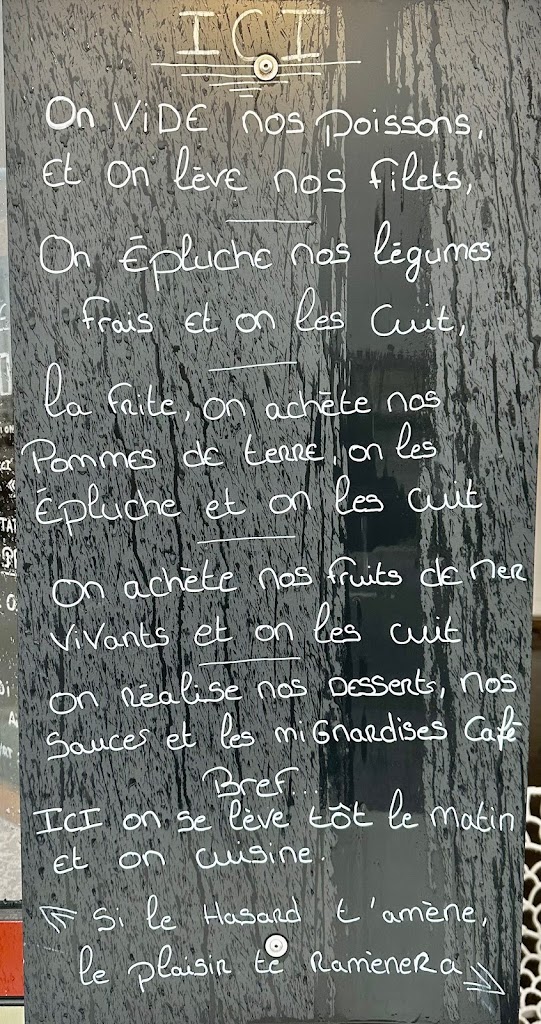 ICI
On ViDE nos poissons,
Et on lève nos filets,
On Épluche nos légumes
frais et on les Cuit,
la frite, on achète nos
Pommes de terre, on les
Épluche et on les cuit
on achète nos fruits de mer
vivants et on les cuit
on réalise nos Desserts, nos
Sauces et les miGnardises Café
Bref...
ICI on se lève tôt le matin
et on cuisine.
Si le Hasard t'amène,
le plaisir te Ramènera